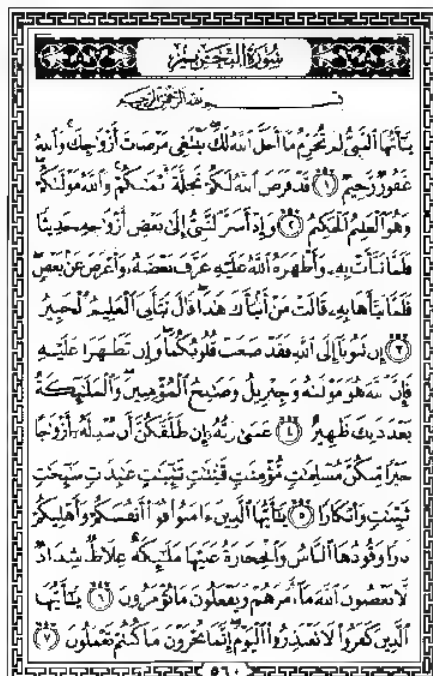 سُورَةُ التَّحْرِيمِ
بِسْمِ اللَّهِ الرَّحْمَٰنِ الرَّحِيمِ
يَٰٓأَيُّهَا ٱلنَّبِىُّ لِمَ تُحَرِّمُ مَآ أَحَلَّ ٱللَّهُ لَكَ تَبْتَغِى مَرْضَاتَ أَزْوَٰجِكَ وَٱللَّهُ
غَفُورٌ رَّحِيمٌ ١ قَدْ فَرَضَ ٱللَّهُ لَكُمْ تَحِلَّةَ أَيْمَٰنِكُمْ وَٱللَّهُ مَوْلَىٰكُمْ
وَهُوَ ٱلْعَلِيمُ ٱلْحَكِيمُ ٢ وَإِذْ أَسَرَّ ٱلنَّبِىُّ إِلَىٰ بَعْضِ أَزْوَٰجِهِۦ حَدِيثًا
فَلَمَّا نَبَّأَتْ بِهِۦ وَأَظْهَرَهُ ٱللَّهُ عَلَيْهِ عَرَّفَ بَعْضَهُۥ وَأَعْرَضَ عَنۢ بَعْضٍ
فَلَمَّا نَبَّأَهَا بِهِۦ قَالَتْ مَنْ أَنۢبَأَكَ هَٰذَا قَالَ نَبَّأَنِىَ ٱلْعَلِيمُ ٱلْخَبِيرُ
٣ إِن تَتُوبَآ إِلَى ٱللَّهِ فَقَدْ صَغَتْ قُلُوبُكُمَا وَإِن تَظَٰهَرَا عَلَيْهِ
فَإِنَّ ٱللَّهَ هُوَ مَوْلَىٰهُ وَجِبْرِيلُ وَصَٰلِحُ ٱلْمُؤْمِنِينَ وَٱلْمَلَٰٓئِكَةُ
بَعْدَ ذَٰلِكَ ظَهِيرٌ ٤ عَسَىٰ رَبُّهُۥٓ إِن طَلَّقَكُنَّ أَن يُبْدِلَهُۥٓ أَزْوَٰجًا
خَيْرًا مِّنكُنَّ مُسْلِمَٰتٍ مُّؤْمِنَٰتٍ قَٰنِتَٰتٍ تَٰٓئِبَٰتٍ عَٰبِدَٰتٍ سَٰٓئِحَٰتٍ
ثَيِّبَٰتٍ وَأَبْكَارًا ٥ يَٰٓأَيُّهَا ٱلَّذِينَ ءَامَنُوا۟ قُوٓا۟ أَنفُسَكُمْ وَأَهْلِيكُمْ
نَارًا وَقُودُهَا ٱلنَّاسُ وَٱلْحِجَارَةُ عَلَيْهَا مَلَٰٓئِكَةٌ غِلَاظٌ شِدَادٌ
لَّا يَعْصُونَ ٱللَّهَ مَآ أَمَرَهُمْ وَيَفْعَلُونَ مَا يُؤْمَرُونَ ٦ يَٰٓأَيُّهَا
ٱلَّذِينَ كَفَرُوا۟ لَا تَعْتَذِرُوا۟ ٱلْيَوْمَ إِنَّمَا تُجْزَوْنَ مَا كُنتُمْ تَعْمَلُونَ ٧
٥٦٠